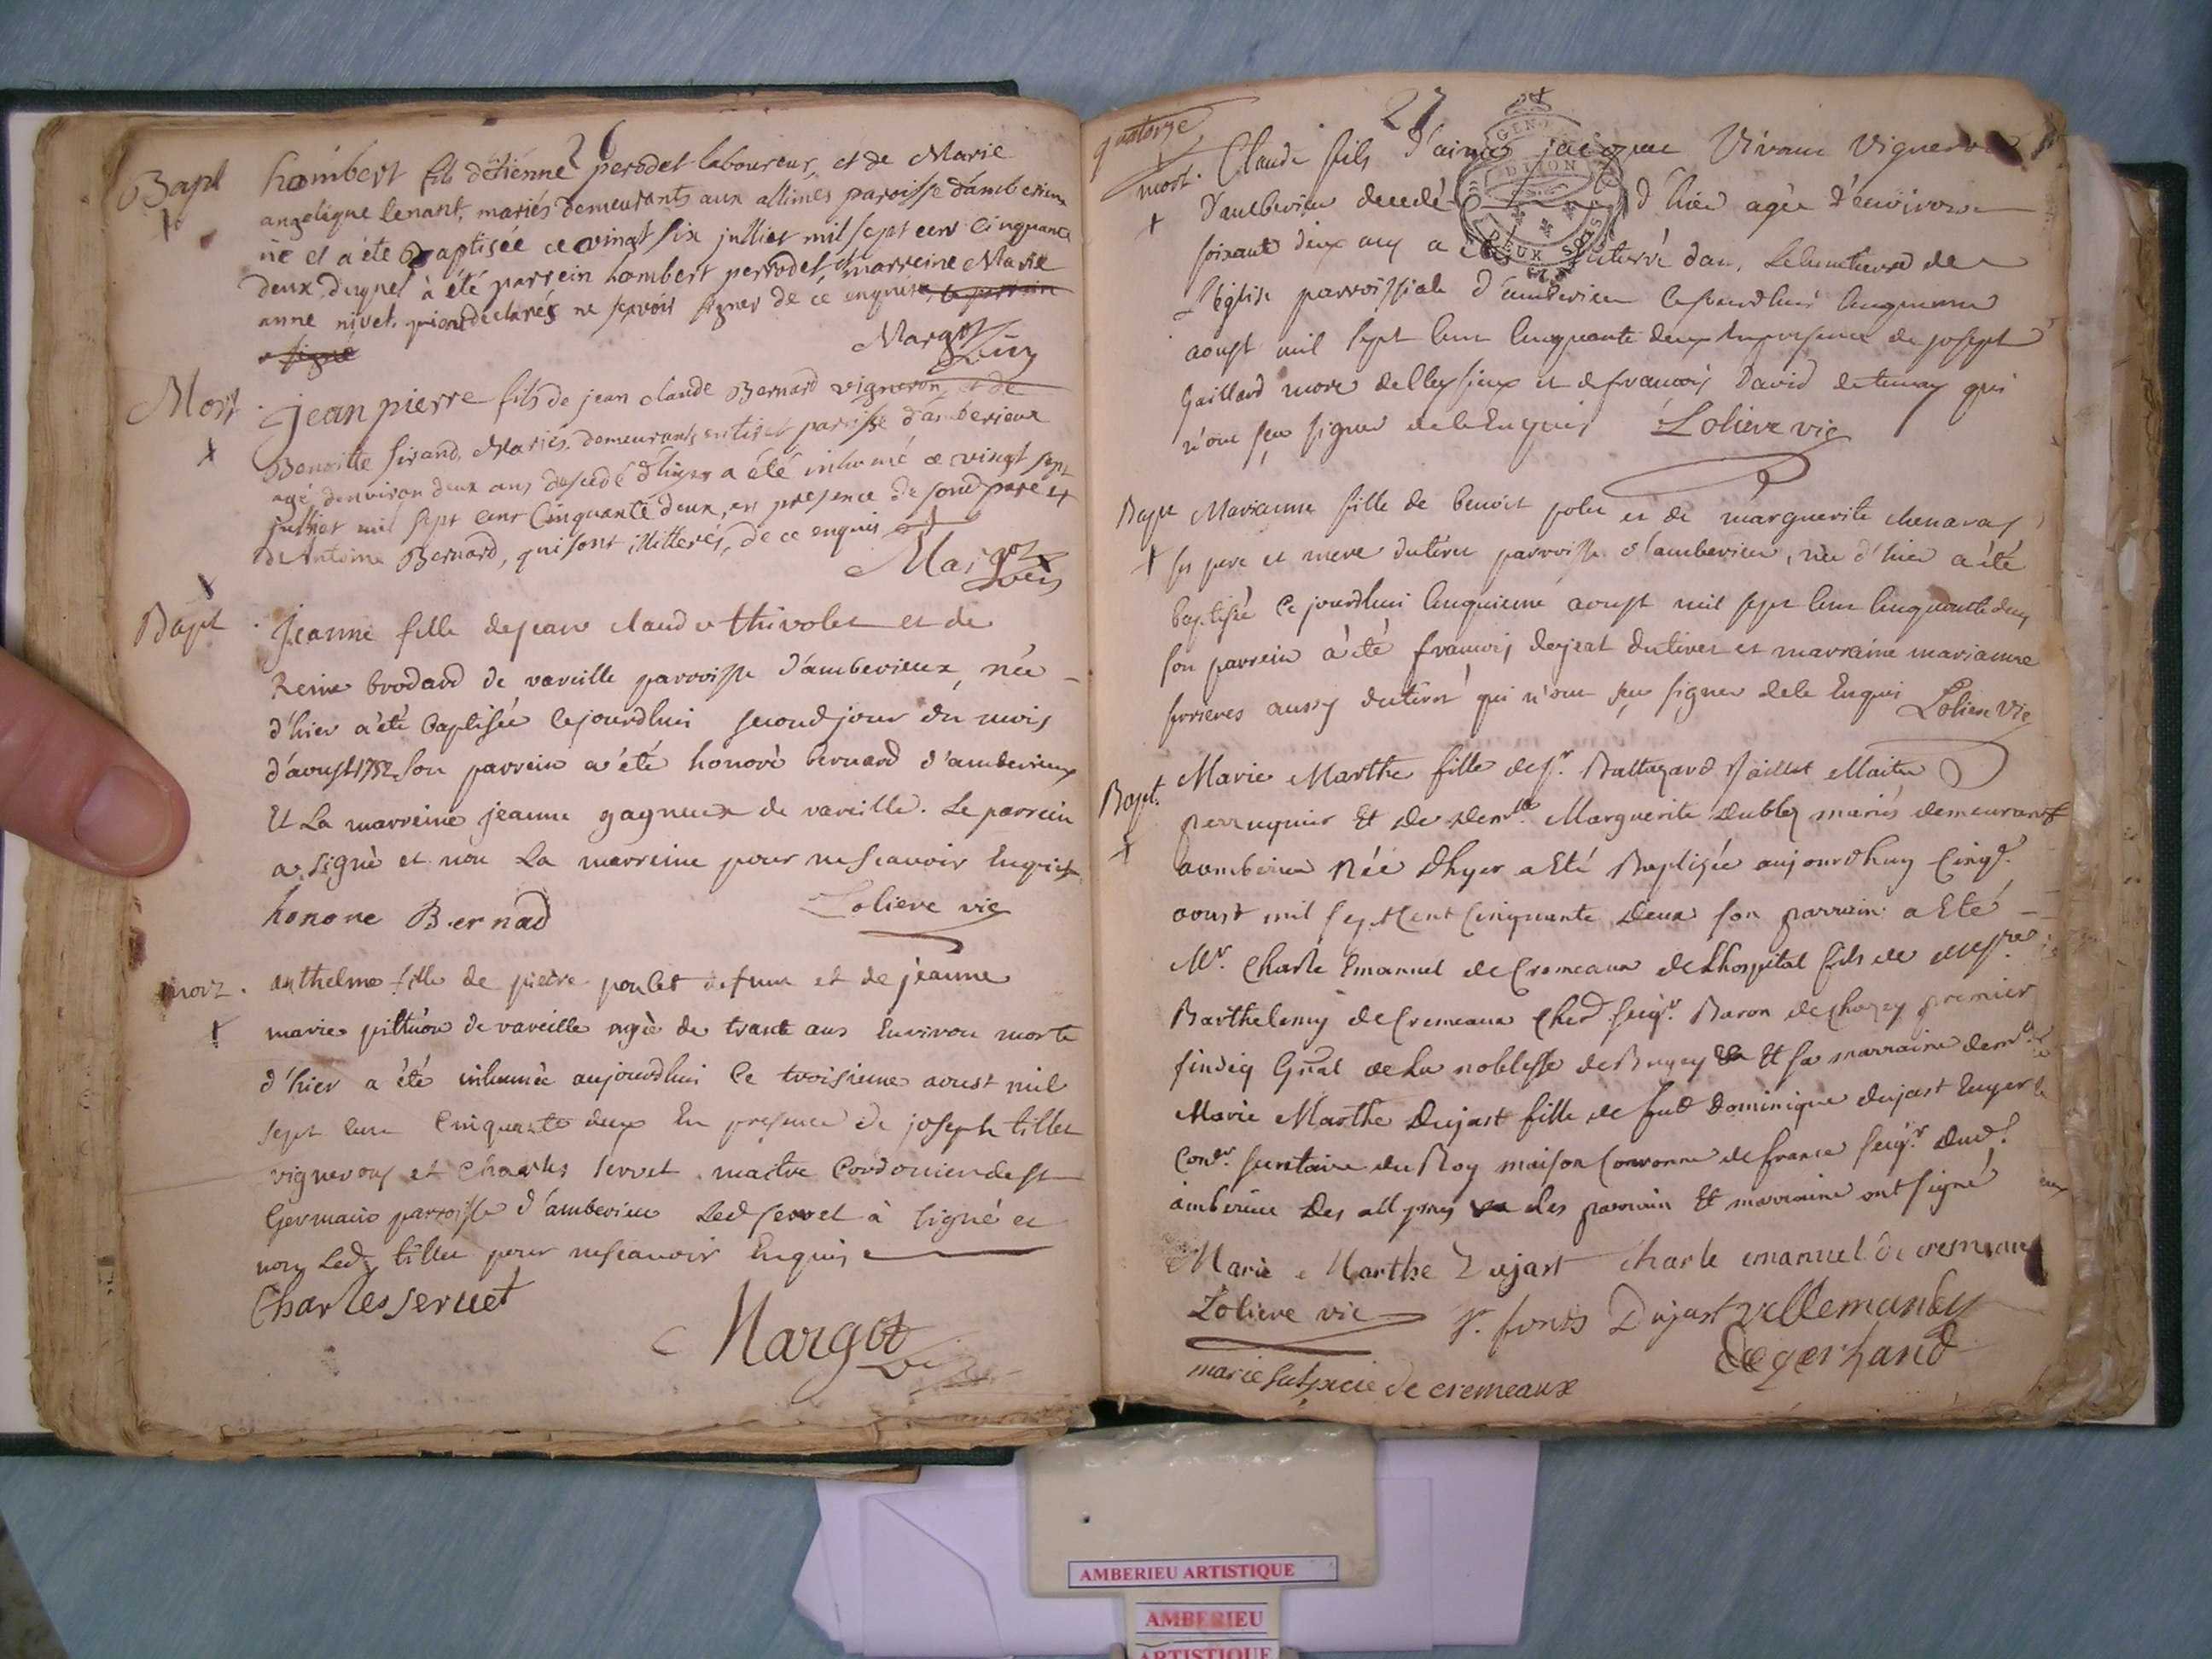 26
Bapt hombert fils d'étienne perodet laboureur, et de Marie
angelique lenant, mariés demeurants aux allimes paroisse d'amberieux
né et a été Baptisée ce vingt six julliet mil sept cent Cinquante
deux, duquel à été parrein hombert perrodet, et marreine Marie
anne nivet, qui ont déclarés ne sçavoir signer de ce enquis, le parrain
a signé
Margot
Mort . jean pierre fils de jean claude Bernard vigneron, et de
Benoitte sirand, Mariés, demeurants au tiret paroisse d'amberieux
agé d'environ deux ans decedé d'hyer a été inhumé ce vingt sept
julliet mil sept cent Cinquante deux, en presence de son d pere et
de Antoine Bernard, qui sont illitterés, de ce enquis
Margot
Bapt . Jeanne fille de jean claude thivolet et de
Reine brodard de vareille parroisse d'amberieux, née
d'hier a été baptisée ce jourdhui second jour du mois
d'aoust 1752 son parrein a été honoré bernard d'amberieux
Et La marreine jeanne gagneux de vareille. Le parrein
a signé et non La marreine pour ne scavoir Enquis
honore Bernad Loliere vic
mort . anthelme fille de pierre poulet defunt et de jeanne
marie pittion de vareille agée de trante ans Environ morte
d'hier a été inhumée aujourdhui Ce troisieme aoust mil
sept cent Cinquante deux En presence de joseph tillet
vigneron et Charles servet maitre Cordonier de st
Germain parroisse d'amberieu Led servet à signé et
non Led tillet pour ne scavoir Enquis
Charles seruet
Margot
quatorze 27
GEN DIJON
DEUX SOLS
mort. Claude fils d'aimé jacque Vivant Vigneron
d'amberieu decedé d'hier agée d'environ
soixante deux ans a été enterré dans Le Cimetiere de
L'église parroissiale d'amberieu Ce jourdhui Cinquieme
aoust mil sept Cent Cinquante deux En presence de joseph
Gaillard more de Leyssieux et de francois David de tenay qui
n'ont sçu signer de ce Enquis Loliere vic
Bapt Marianne fille de benoit et de marguerite chenavas
ses pere et mere du tiret parroisse d'amberieu, née d'hier a été
baptisée Ce jourdhui Cinquieme aoust mil sept Cent Cinquante deux
son parrein a été francois dejeat du tiret et marraine marianne
ferrieres aussy du tiret qui n'ont sçu signer de ce Enquis Loliere Vic
Bapt. Marie Marthe fille de sr. Baltazard Maitre
perruquier Et de demlle. Marguerite Dubley mariés demeurant
a amberieu Née D'hyer a Eté Baptizée aujourdhuy Cinqe.
aoust mil sept Cent Cinquante Deux son parrain a Eté
Mr. Charle Emanuel de Cremeaux de Lhospital fils de Messre
Barthelemy de Cremeaux Cher seigr. Baron de Chazey premier
sindiq Gnal de La noblesse de Bugey Et sa marraine demlle
Marie Marthe Dujast fille de feu d Dominique dujast Ecuyer
Coner. secretaire du Roy maison Couronne de france seigr. Dud.
amberieu Des allymes Les parrain Et marraine ont signé
Marie Marthe Dujast charle emanuel de cremeaux
Loliere vic Dujast
marie de cremeaux
AMBERIEU ARTISTIQUE
AMBERIEU
ARTISTIQUE